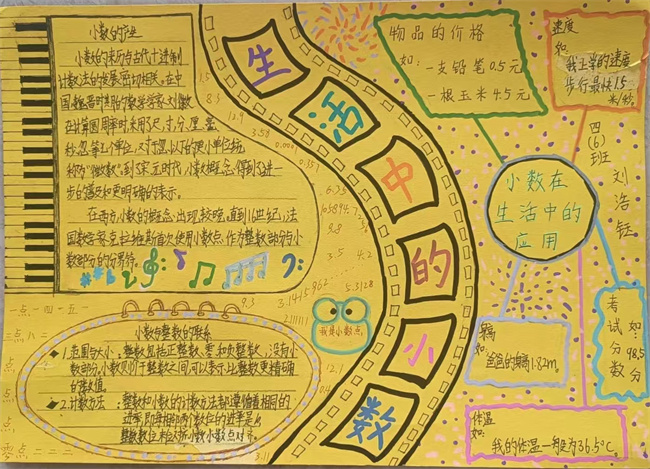 小数的产生
小数的来历与古代十进制
计数法的发展密切相关。在中
国魏晋时期的数学家刘徽
在计算圆周率时采用了尺、寸、分、厘、毫、
秒、忽等单位，对于忽以下的更小单位统
称为“微数”，到宋元时代，小数概念得到了进一
步的普及和更明确的表示。
在西方，小数的概念出现较晚，直到16世纪，法
国数学家克拉维斯首次使用小数点作为整数部分与小
数部分的分界符。
小数与整数的联系
1.范围与大小：整数包括正整数、零和负整数，没有小
数部分，小数则介于整数之间，可以表示比整数更精确
的数值。
2.计数方法：整数和小数的计数方法都遵循着相同的
进率，即相邻两个数位的进率是10
整数数位末位对齐，小数小数点对齐。
一点一四一五一
三点八二
点
点
零点二二二
1.5
8.5
12.9
3.58
0.001
0.357
6.25
9.8
3.5
4.2
962
5.3128
9.3
3.1415
211111
12.1
3.11
我是小数点
生
活
中
的
小
数
物品的价格
如：一支铅笔0.5元
一根玉米4.5元
速度
如：
我上学的速度
步行最快1.5
米/秒。
四
(6)
班
刘
浩
钰
小数在
生活中的
应用
身高
如：
爸爸的身高1.82m。
考试分数
如：98.5分
体温
如：
我的体温一般为36.5℃。